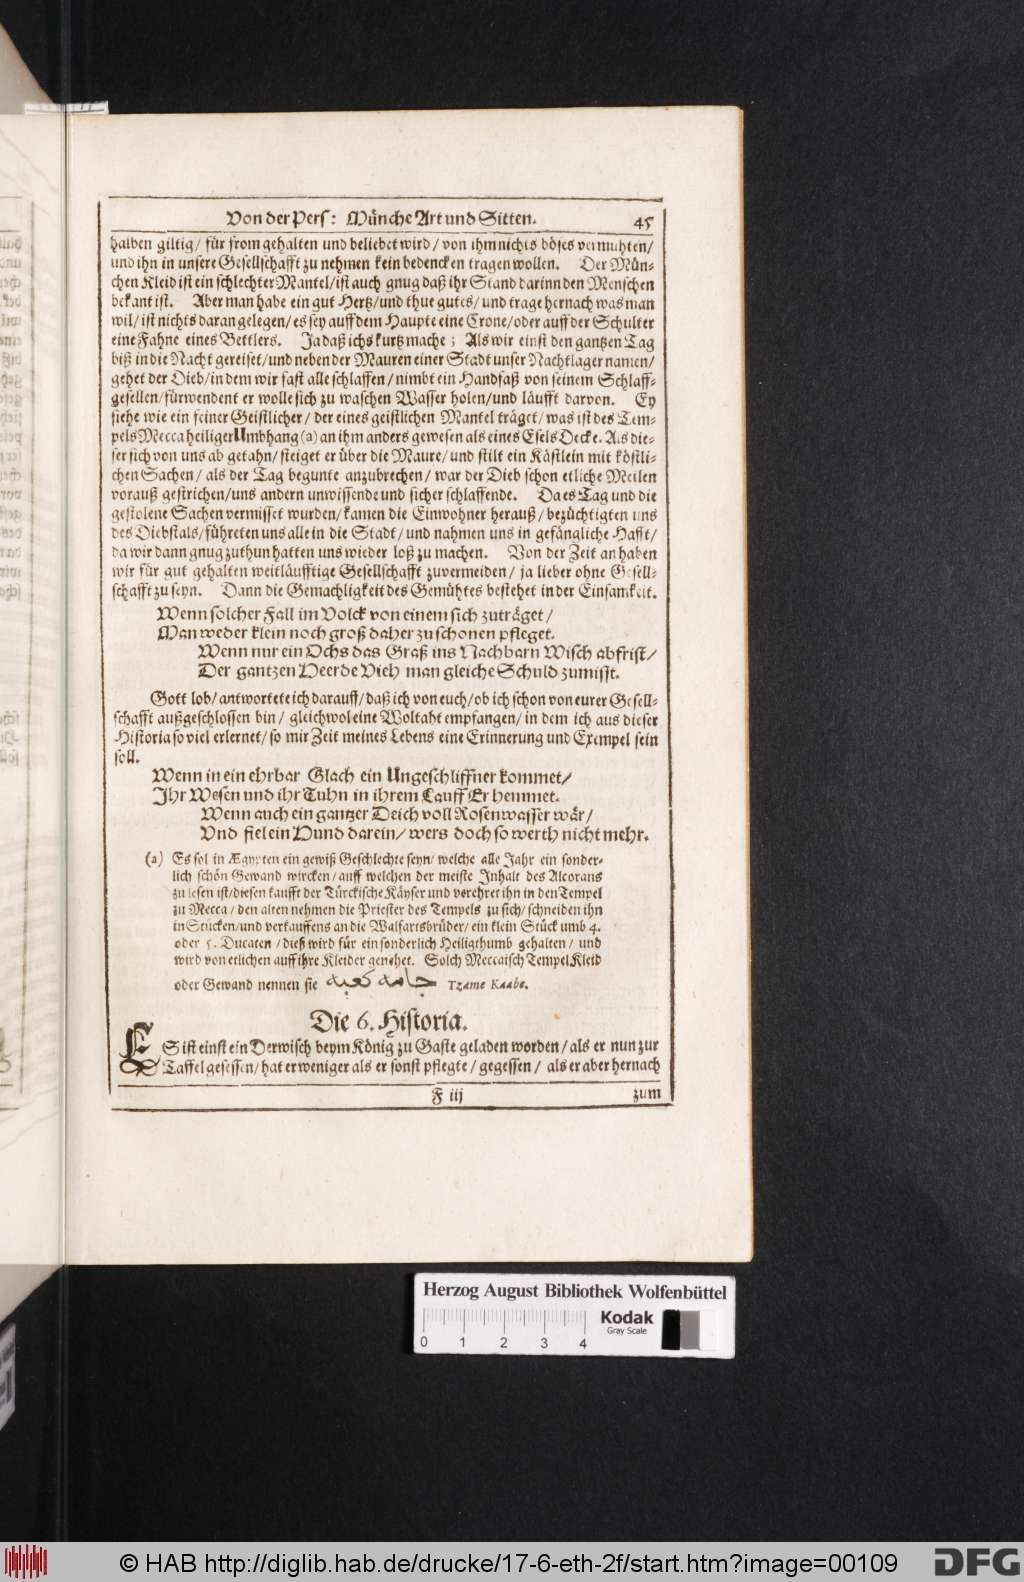 Von der Pers: Münche Art und Sitten. 45
halben giltig/ für from gehalten und beliebet wird/ von ihm nichts böses vermuhten/
und ihn in unsere Gesellschafft zu nehmen kein bedencken tragen wollen. Der Mün-
chen Kleid ist ein schlechter Mantel/ ist auch gnug daß ihr Stand darinn den Menschen
bekant ist. Aber man habe ein gut Hertz/ und thue gutes/ und trage hernach was man
wil/ ist nichts daran gelegen/ es sey auff dem Haupte eine Crone/ oder auff der Schulter
eine Fahne eines Bettlers. Ja daß ichs kurtz mache; Als wir einst den gantzen Tag
biß in die Nacht gereiset/ und neben der Mauren einer Stadt unser Nachtlager namen/
gehet der Dieb/ in dem wir fast alle schlaffen/ nimbt ein Handfaß von seinem Schlaff-
gesellen/ fürwendent er wolle sich zu waschen Wasser holen/ und läufft darvon. Ey
siehe wie ein feiner Geistlicher/ der eines geistlichen Mantel träget/ was ist des Tem-
pels Mecca heiliger Umbhang (a) an ihm anders gewesen als eines Esels Decke. Als die-
ser sich von uns ab getahn/ steiget er über die Maure/ und stilt ein Kästlein mit köstli-
chen Sachen/ als der Tag begunte anzubrechen/ war der Dieb schon etliche Meilen
vorauß gestrichen/ uns andern unwissende und sicher schlaffende. Da es Tag und die
gestolene Sachen vermisset wurden/ kamen die Einwohner herauß/ bezüchtigten uns
des Diebstals/ führeten uns alle in die Stadt/ und nahmen uns in gefängliche Hafft/
da wir dann gnug zuthun hatten uns wieder loß zu machen. Von der Zeit an haben
wir für gut gehalten weitläufftige Gesellschafft zuvermeiden/ ja lieber ohne Gesell-
schafft zu seyn. Dann die Gemachligkeit des Gemühtes bestehet in der Einsamkeit.
Wenn solcher Fall im Volck von einem sich zuträget/
Man weder klein noch groß daher zu schonen pfleget.
Wenn nur ein Ochs das Graß ins Nachbarn Wisch abfrist/
Der gantzen Heerde Vieh man gleiche Schuld zumisst.
Gott lob/ antwortete ich darauff/ daß ich von euch/ ob ich schon von eurer Gesell-
schafft außgeschlossen bin/ gleichwol eine Woltaht empfangen/ in dem ich aus dieser
Historia so viel erlernet/ so mir Zeit meines Lebens eine Erinnerung und Exempel sein
soll.
Wenn in ein ehrbar Glach ein Ungeschliffner kommet/
Ihr Wesen und ihr Tuhn in ihrem Lauff Er hemmet.
Wenn auch ein gantzer Deich voll Rosenwasser wär/
Vnd fiel ein Hund darein/ wers doch so werth nicht mehr.
(a) Es sol in Ægypten ein gewiß Geschlechte seyn/ welche alle Jahr ein sonder-
lich schön Gewand wircken/ auff welchen der meiste Inhalt des Alcorans
zu lesen ist/ diesen kaufft der Türckische Käyser und verehret ihn in den Tempel
zu Mecca/ den alten nehmen die Priester des Tempels zu sich/ schneiden ihn
in Stücken/ und verkauffens an die Walfartsbrüder/ ein klein Stück umb 4.
oder 5. Ducaten/ dieß wird für ein sonderlich Heiligthumb gehalten/ und
wird von etlichen auff ihre Kleider genehet. Solch Meccaisch Tempel Kleid
oder Gewand nennen sie جامه كعبه Tzame Kaabe.
Die 6. Historia.
ES ist einst ein Derwisch beym König zu Gaste geladen worden/ als er nun zur
Taffel gesessen/ hat er weniger als er sonst pflegte/ gegessen/ als er aber hernach
F iij zum
Herzog August Bibliothek Wolfenbüttel
0 1 2 3 4
Kodak
Gray Scale
© HAB http://diglib.hab.de/drucke/17-6-eth-2f/start.htm?image=00109
DFG